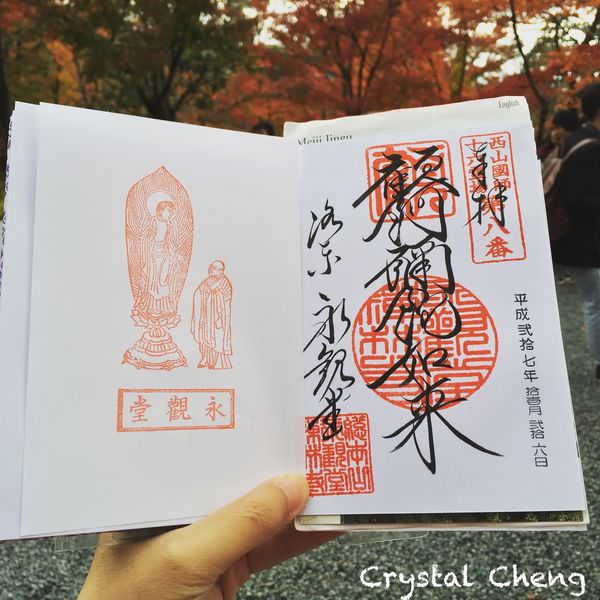 English
Meiji Jingu
西山國師
十六霊場第八番
奉拝
平成弐拾七年 拾壹月 弐拾六日
阿彌陀如来
洛東 永観堂
永觀堂
Crystal Cheng